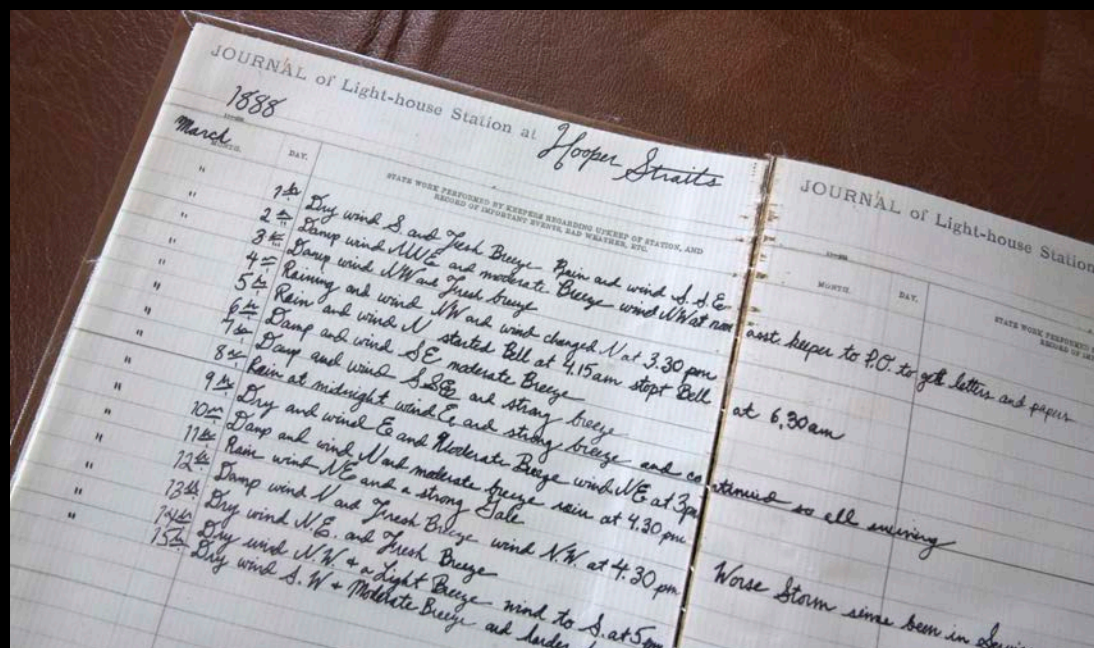 JOURNAL of Light-house Station at Hooper Straits
1888
March
MONTH. DAY. STATE WORK PERFORMED BY KEEPERS REGARDING UPKEEP OF STATION, AND
RECORD OF IMPORTANT EVENTS, BAD WEATHER, ETC.
" 1st Dry wind S. and Fresh Breeze Rain and wind S.S.E.
" 2 Damp wind and moderate Breeze wind NW at noon asst keeper to P.O. to gett letters and papers
" 3 Damp wind NW and Fresh breeze
" 4 Raining and wind NW and wind changed N at 3.30 pm
" 5 Rain and wind N started Bell at 4.15 am stopt Bell at 6,30am
" 6 Damp and wind SE moderate Breeze
" 7 Damp and wind S.S.E and strong breeze
" 8 Rain at midnight wind E and strong breeze and continued so all evening
" 9 Dry and wind E and Moderate Breeze wind NE at 3pm
" 10 Damp and wind N and moderate breeze rain at 4.30 pm
" 11 Rain wind NE and a strong Gale Worse Storm sense been in
" 12 Damp wind N and Fresh Breeze wind N.W. at 4.30 pm
" 13 Dry wind N.E. and Fresh Breeze
" 14 Dry wind N.W. + a Light Breeze wind to S. at 5 pm
15 Dry wind S.W + Moderate Breeze and
JOURNAL of Light-house Station
MONTH. DAY. STATE WORK PERFORMED
RECORD OF